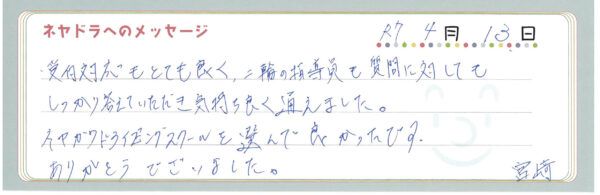 ネヤドラへのメッセージ
R7 4月 13日
受付対応もとても良く、二輪の指導員も質問に対しても
しっかり答えていただき気持ち良く通えました。
ネヤガワドライビングスクールを選んで良かったです。
ありがとうございました。
宮崎